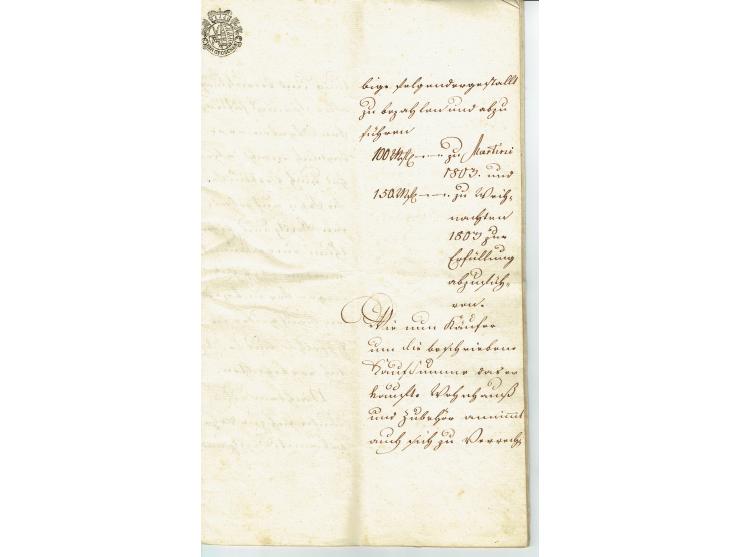 bige folgendergestallt
zu bezahlen und abzu
führen
100 Mfl — zu Martini
1803. und
150 Mfl — zu Weih-
nachten
1803 zur
Erfüllung
abzufüh-
ren.
Wie nun Käufer
um die beschriebene
Kaufsumme das er
kaufte Wohnhauß
und Zubehör annimmt
auch sich zu Verrech-